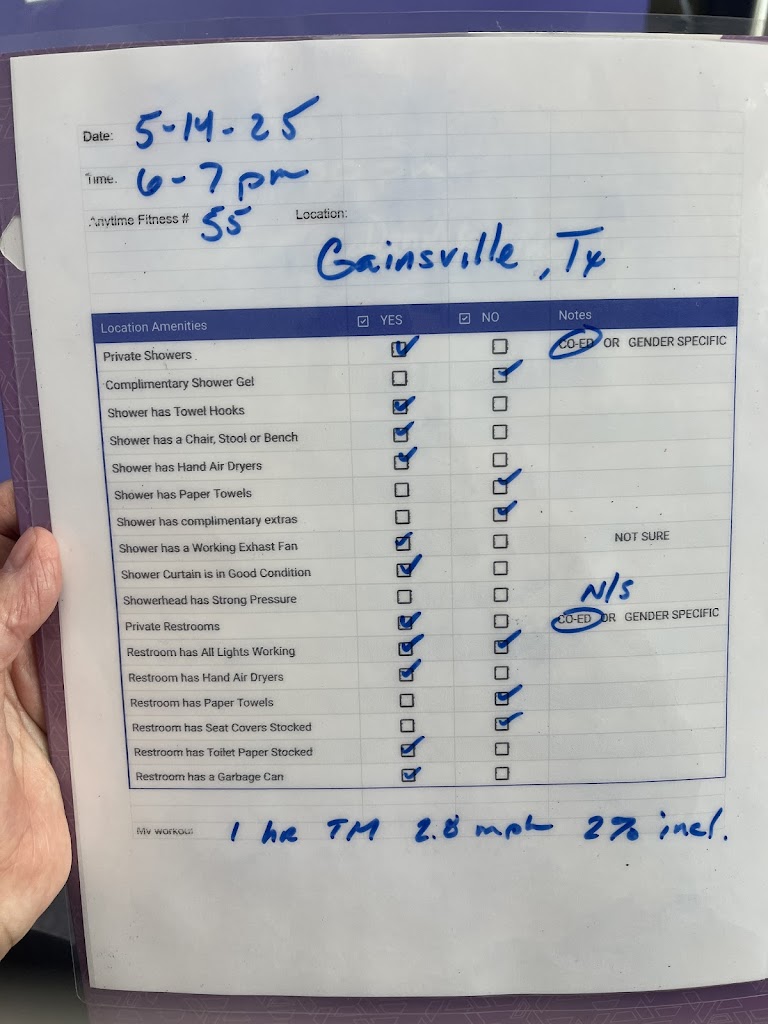 Date: 5-14-25
Time: 6-7 pm
Anytime Fitness # 55 Location:
Gainsville, Tx
Location Amenities ☑ YES ☑ NO Notes
Private Showers ☑ ☐ CO-ED OR GENDER SPECIFIC
Complimentary Shower Gel ☐ ☑
Shower has Towel Hooks ☑ ☐
Shower has a Chair, Stool or Bench ☑ ☐
Shower has Hand Air Dryers ☑ ☐
Shower has Paper Towels ☐ ☑
Shower has complimentary extras ☐ ☑
Shower has a Working Exhast Fan ☑ ☐ NOT SURE
Shower Curtain is in Good Condition ☑ ☐
Showerhead has Strong Pressure ☐ ☐ N/S
Private Restrooms ☑ ☐ CO-ED OR GENDER SPECIFIC
Restroom has All Lights Working ☑ ☑
Restroom has Hand Air Dryers ☑ ☐
Restroom has Paper Towels ☐ ☑
Restroom has Seat Covers Stocked ☐ ☑
Restroom has Toilet Paper Stocked ☑ ☐
Restroom has a Garbage Can ☑ ☐
My workout: 1 hr TM 2.8 mph 2% incl.